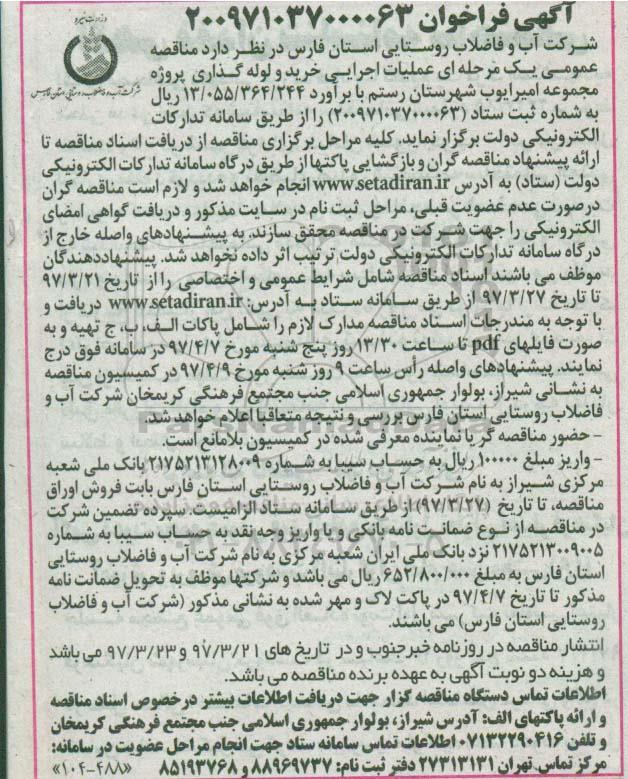 آگهی فراخوان ۲۰۰۹۷۱۰۳۷۰۰۰۰۶۳
وزارت نیرو
شرکت آب و فاضلاب روستایی استان فارس
شرکت آب و فاضلاب روستایی استان فارس در نظر دارد مناقصه
عمومی یک مرحله ای عملیات اجرایی خرید و لوله گذاری پروژه
مجموعه امیرایوب شهرستان رستم با برآورد ۱۳/۰۵۵/۳۶۴/۲۴۴ ریال
به شماره ثبت ستاد (۲۰۰۹۷۱۰۳۷۰۰۰۰۶۳) را از طریق سامانه تدارکات
الکترونیکی دولت برگزار نماید. کلیه مراحل برگزاری مناقصه از دریافت اسناد مناقصه تا
ارائه پیشنهاد مناقصه گران و بازگشایی پاکتها از طریق درگاه سامانه تدارکات الکترونیکی
دولت (ستاد) به آدرس www.setadiran.ir انجام خواهد شد و لازم است مناقصه گران
درصورت عدم عضویت قبلی، مراحل ثبت نام در سایت مذکور و دریافت گواهی امضای
الکترونیکی را جهت شرکت در مناقصه محقق سازند. به پیشنهادهای واصله خارج از
درگاه سامانه تدارکات الکترونیکی دولت ترتیب اثر داده نخواهد شد. پیشنهاددهندگان
موظف می باشند اسناد مناقصه شامل شرایط عمومی و اختصاصی را از تاریخ ۹۷/۳/۲۱
تا تاریخ ۹۷/۳/۲۷ از طریق سامانه ستاد به آدرس: www.setadiran.ir دریافت و
با توجه به مندرجات اسناد مناقصه مدارک لازم را شامل پاکات الف، ب، ج تهیه و به
صورت فایلهای pdf تا ساعت ۱۳/۳۰ روز پنج شنبه مورخ ۹۷/۴/۷ در سامانه فوق درج
نمایند. پیشنهادهای واصله رأس ساعت ۹ روز شنبه مورخ ۹۷/۴/۹ در کمیسیون مناقصه
به نشانی شیراز، بولوار جمهوری اسلامی جنب مجتمع فرهنگی کریمخان شرکت آب و
فاضلاب روستایی استان فارس بررسی و نتیجه متعاقبا اعلام خواهد شد.
- حضور مناقصه گر یا نماینده معرفی شده در کمیسیون بلامانع است.
- واریز مبلغ ۱۰۰۰۰۰ ریال به حساب سیبا به شماره ۲۱۷۵۲۱۳۱۲۸۰۰۹ بانک ملی شعبه
مرکزی شیراز به نام شرکت آب و فاضلاب روستایی استان فارس بابت فروش اوراق
مناقصه، تا تاریخ (۹۷/۳/۲۷) از طریق سامانه ستاد الزامیست. سپرده تضمین شرکت
در مناقصه از نوع ضمانت نامه بانکی و یا واریز وجه نقد به حساب سیبا به شماره
۲۱۷۵۲۱۳۰۰۹۰۰۵ نزد بانک ملی ایران شعبه مرکزی به نام شرکت آب و فاضلاب روستایی
استان فارس به مبلغ ۶۵۲/۸۰۰/۰۰۰ ریال می باشد و شرکتها موظف به تحویل ضمانت نامه
مذکور تا تاریخ ۹۷/۴/۷ در پاکت لاک و مهر شده به نشانی مذکور (شرکت آب و فاضلاب
روستایی استان فارس) می باشند.
انتشار مناقصه در روزنامه خبرجنوب و در تاریخ های ۹۷/۳/۲۱ و ۹۷/۳/۲۳ می باشد
و هزینه دو نوبت آگهی به عهده برنده مناقصه می باشد.
اطلاعات تماس دستگاه مناقصه گزار جهت دریافت اطلاعات بیشتر در خصوص اسناد مناقصه
و ارائه پاکتهای الف: آدرس شیراز، بولوار جمهوری اسلامی جنب مجتمع فرهنگی کریمخان
و تلفن ۰۷۱۳۲۲۹۰۴۱۶ اطلاعات تماس سامانه ستاد جهت انجام مراحل عضویت در سامانه:
مرکز تماس تهران ۲۷۳۱۳۱۳۱ دفتر ثبت نام: ۸۸۹۶۹۷۳۷ و ۸۵۱۹۳۷۶۸ «۱۰۴-۴۸۸»